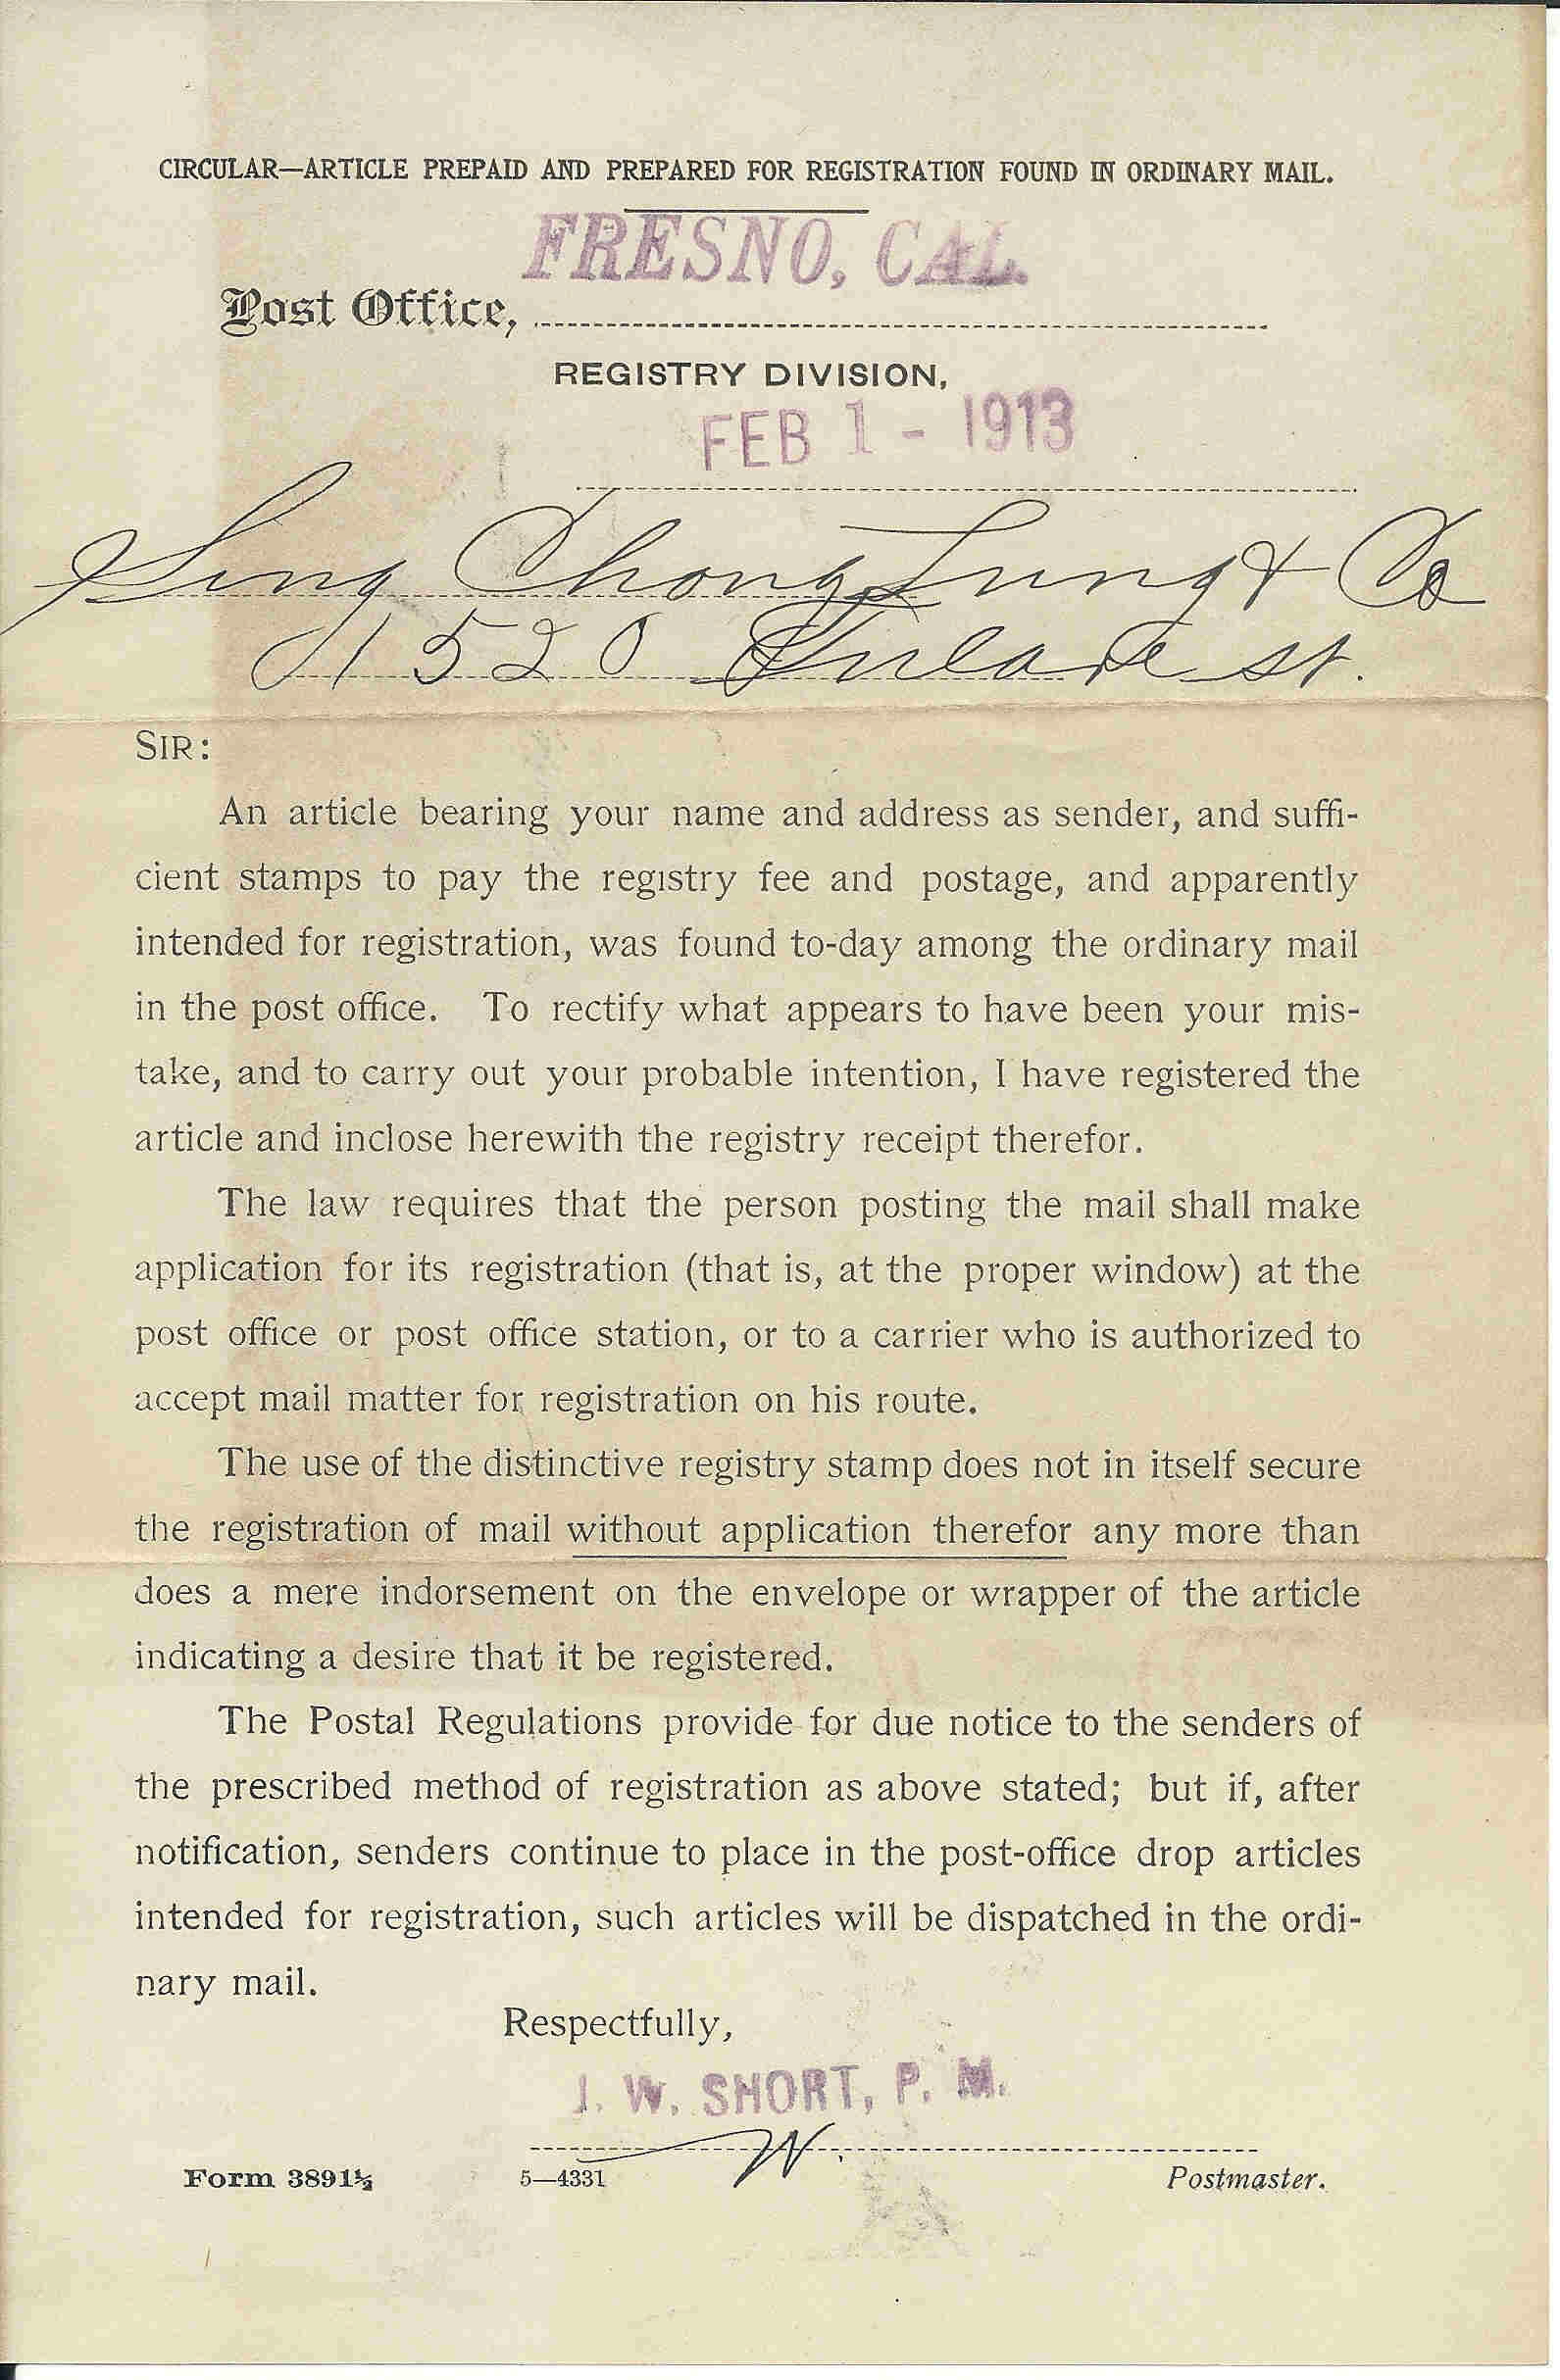 CIRCULAR—ARTICLE PREPAID AND PREPARED FOR REGISTRATION FOUND IN ORDINARY MAIL.
FRESNO, CAL.
Post Office,
REGISTRY DIVISION,
FEB 1 - 1913
Sing Chong Lung & Co
1520 Tulare st.
SIR:
An article bearing your name and address as sender, and suffi-
cient stamps to pay the registry fee and postage, and apparently
intended for registration, was found to-day among the ordinary mail
in the post office. To rectify what appears to have been your mis-
take, and to carry out your probable intention, I have registered the
article and inclose herewith the registry receipt therefor.
The law requires that the person posting the mail shall make
application for its registration (that is, at the proper window) at the
post office or post office station, or to a carrier who is authorized to
accept mail matter for registration on his route.
The use of the distinctive registry stamp does not in itself secure
the registration of mail without application therefor any more than
does a mere indorsement on the envelope or wrapper of the article
indicating a desire that it be registered.
The Postal Regulations provide for due notice to the senders of
the prescribed method of registration as above stated; but if, after
notification, senders continue to place in the post-office drop articles
intended for registration, such articles will be dispatched in the ordi-
nary mail.
Respectfully,
J. W. SHORT, P. M.
W.
Form 3891½ 5—4331 Postmaster.